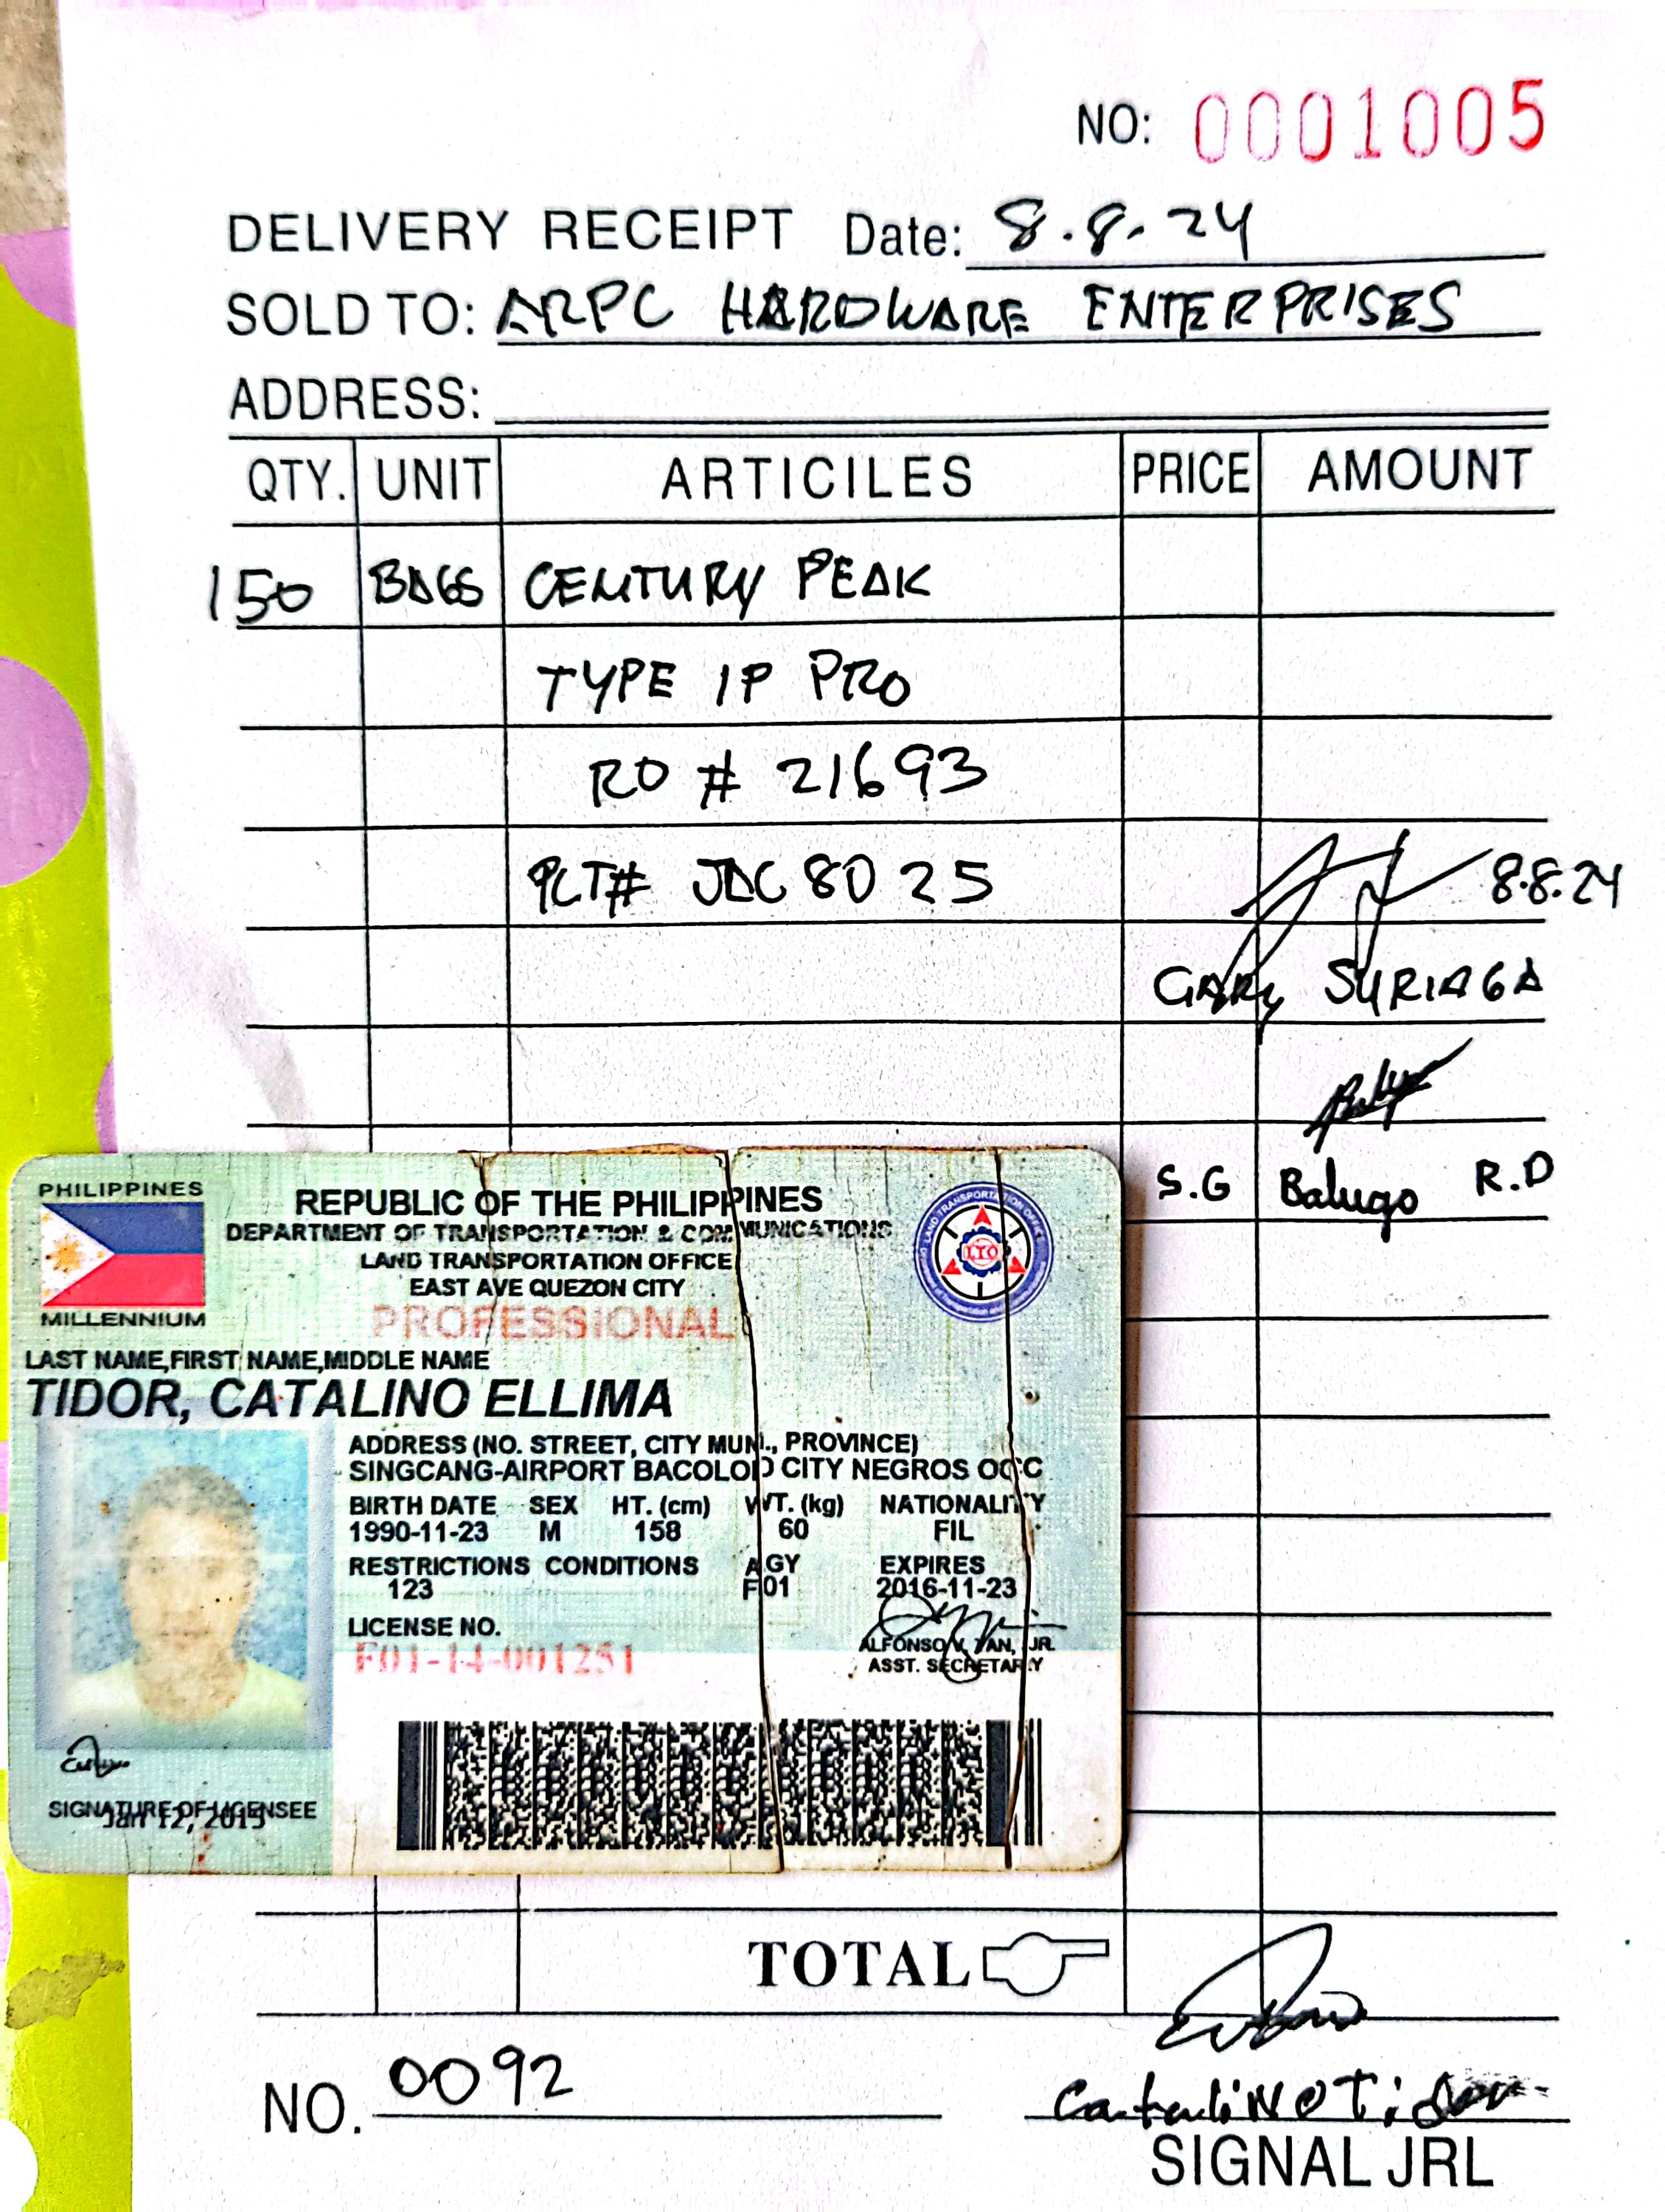 NO: 0001005
DELIVERY RECEIPT Date: 8.8.24
SOLD TO: ARPC HARDWARE ENTERPRISES
ADDRESS:
QTY. UNIT ARTICILES PRICE AMOUNT
150 BAGS CENTURY PEAK
TYPE 1P PRO
RO # 21693
PLT# JAC 8025
8.8.24
GARY SURIAGA
S.G Balugo R.D
PHILIPPINES
MILLENNIUM
REPUBLIC OF THE PHILIPPINES
DEPARTMENT OF TRANSPORTATION & COMMUNICATIONS
LAND TRANSPORTATION OFFICE
EAST AVE QUEZON CITY
PROFESSIONAL
LAND TRANSPORTATION OFFICE
LTO
LAST NAME,FIRST NAME,MIDDLE NAME
TIDOR, CATALINO ELLIMA
ADDRESS (NO. STREET, CITY MUN., PROVINCE)
SINGCANG-AIRPORT BACOLOD CITY NEGROS OCC
BIRTH DATE SEX HT. (cm) WT. (kg) NATIONALITY
1990-11-23 M 158 60 FIL
RESTRICTIONS CONDITIONS AGY EXPIRES
123 F01 2016-11-23
LICENSE NO.
F01-14-001251
ALFONSO V. TAN, JR.
ASST. SECRETARY
SIGNATURE OF LICENSEE
Jan 12, 2015
TOTAL
NO. 0092
Catalino Tidor
SIGNAL JRL